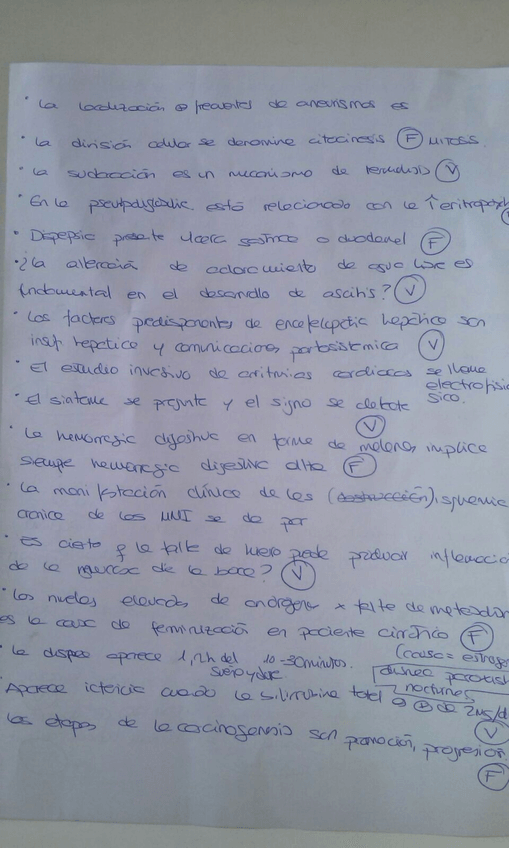 · La localización + frecuente de aneurismas es
· La división celular se denomina citocinesis (F) MITOSIS.
· La sudoración es un mecanismo de termólisis (V)
· En la está relacionado con la ↑ eritropoy
· Dispepsia presente úlcera gástrica o duodenal (F)
· ¿La alteración de aclaramiento de agua libre es
fundamental en el desarrollo de ascitis? (V)
· Los factores predisponentes de encefalopatía hepática son
insuf hepática y comunicaciones portosistémica (V)
· El estudio invasivo de arritmias cardíacas se llama
electrofisio
sico.
· El síntoma se pregunta y el signo se detecta
(V)
· La hemorragia digestiva en forma de melenas implica
siempre hemorragia digestiva alta (F)
· La manifestación clínica de las (obstrucción), isquemia
crónica de los MMI se da por
· Es cierto q la falta de hierro puede producir inflamació
de la mucosa de la boca? (V)
· Los niveles elevados de andrógenos x falta de
es la causa de feminización en paciente cirrótico (F)
(causa = estróge
· La disnea aparece 1, 2h del 10-30 minutos.
sueño y dura
disnea paroxist
nocturna
Aparece ictericia cuando la bilirrubina total es de 2mg/d
(V)
Las etapas de la carcinogenesis son promoción, progresión.
(F)